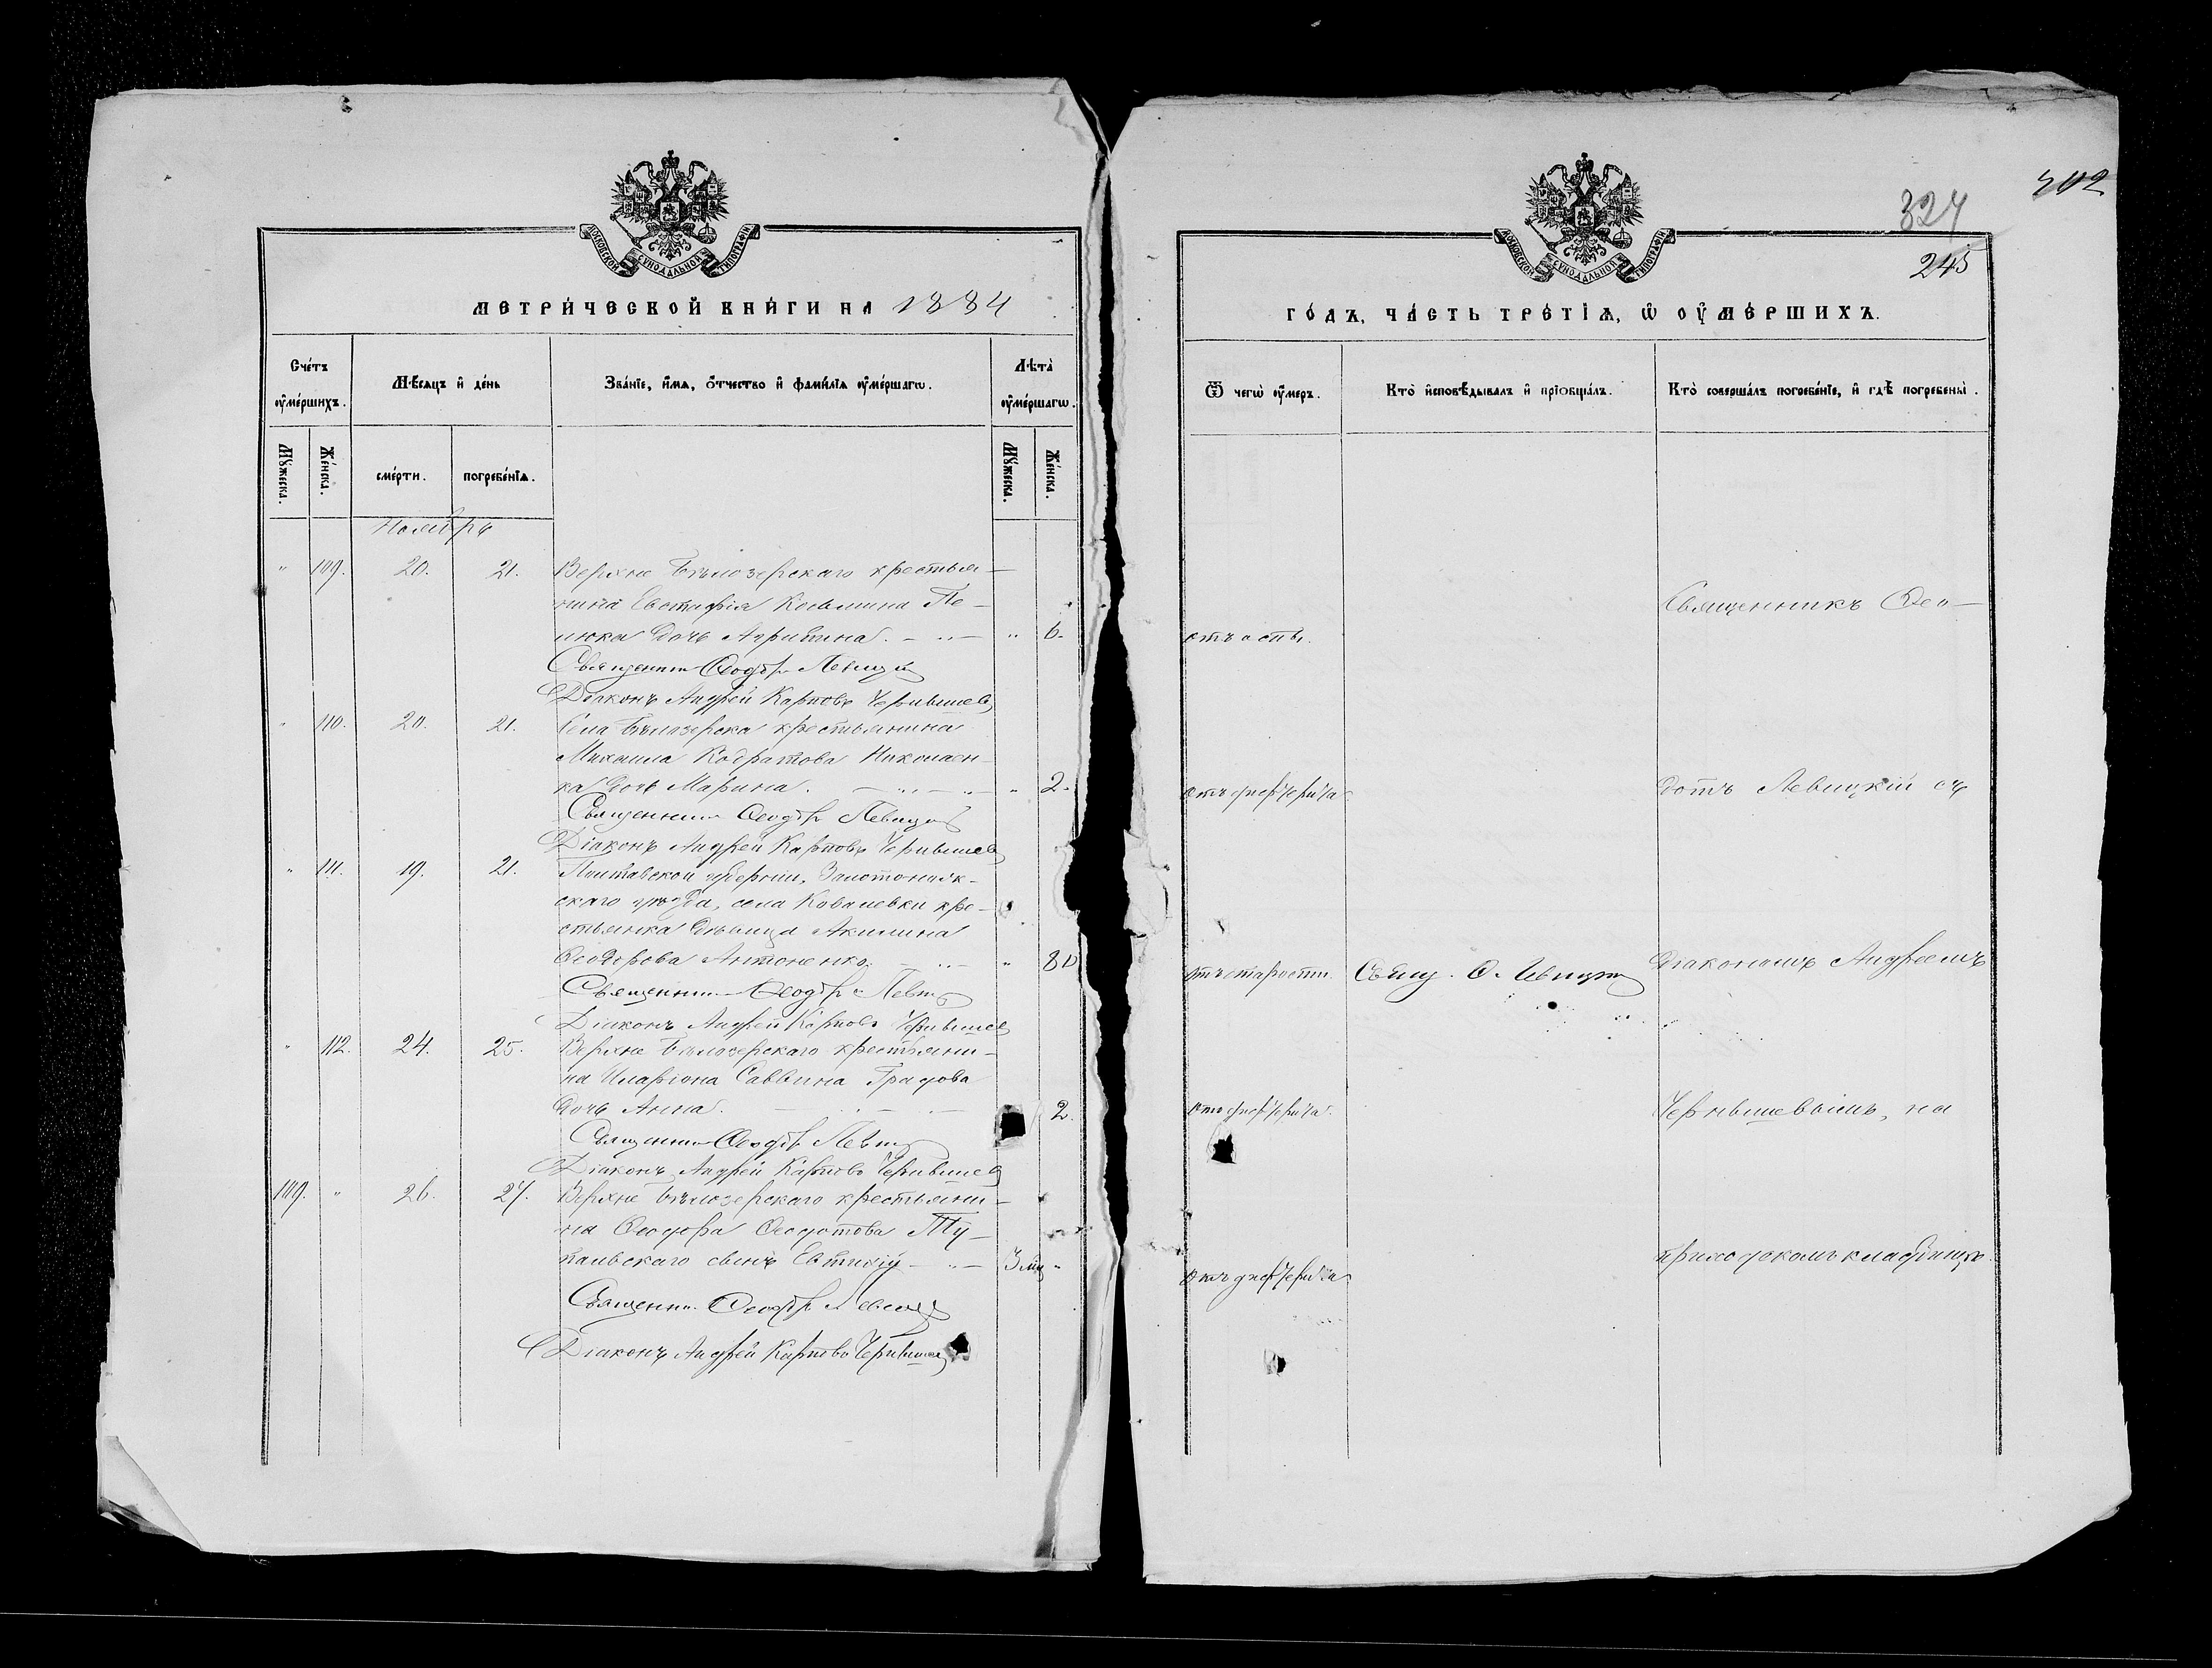 МОСКОВСКОЙ СѴНОДАЛЬНОЙ ТИПОГРАФІИ
МЕТРИ́ЧЕСКОЙ КНИ́ГИ НА 1884
Сче́тъ ᲂу҆ме́ршихъ.
Мѣ́сяцъ и҆ де́нь
Зва́нїе, и҆́мѧ, ѻ҆́тчество и҆ фами́лїѧ ᲂу҆ме́ршагѡ.
Лѣ́та ᲂу҆ме́ршагѡ.
Мꙋ́жеска.
Же́нска.
сме́рти.
погребе́нїѧ.
Мꙋ́жеска.
Же́нска.
Ноябрь
" 109. 20. 21. Верхне Бѣлозерскаго крестья-
нина Евстафія Космина Пе-
дочь Агрипина. " 6.
Священникъ Ѳеодотъ Левицкій
Діаконъ Андрей Карповъ Чернышевъ
" 110. 20. 21. Села Бѣлозерска крестьянина
Михаила Кодратова Николаен-
ка дочь Марина. " 2.
Священникъ Ѳеодотъ Левицкій
Діаконъ Андрей Карповъ Чернышевъ
" 111. 19. 21. Полтавской губерніи, Золотонож-
скаго уѣзда, села Ковалевки кре-
стьянка дѣвица Акилина
Ѳеодорова Антоненко. " 80
Священникъ Ѳеодотъ Левицкій
Діаконъ Андрей Карповъ Чернышевъ
" 112. 24. 25. Верхне Бѣлозерскаго крестьяни-
на Иларіона Саввина Градова
дочь Анна. 2.
Священникъ Ѳеодотъ Левицкій
Діаконъ Андрей Карповъ Чернышевъ
109. " 26. 27. Верхне Бѣлозерскаго крестьяни-
на Ѳеодора Ѳеодотова Ту-
пальскаго сынъ Евтихій 3 мц "
Священникъ Ѳеодотъ Левицкій
Діаконъ Андрей Карповъ Чернышевъ
402
324
245
МОСКОВСКОЙ СѴНОДАЛЬНОЙ ТИПОГРАФІИ
ГО́ДЪ, ЧА́СТЬ ТРЕ́ТІѦ, Ѡ҆ ОУ҆МЕ́РШИХЪ.
Ѿ чегѡ̀ ᲂу҆́меръ.
Кто̀ и҆сповѣ́дывалъ и҆ прїѡбща́лъ.
Кто̀ соверша́лъ погребе́нїе, и҆ гдѣ̀ погребены̀.
Священникъ Ѳео-
отъ оспы.
дотъ Левицкій съ
отъ дифтерита
отъ старости. Свящ. Ѳ. Левицкій
діакономъ Андреемъ
отъ дифтерита.
Чернышевымъ, на
приходскомъ кладбищѣ.
отъ дифтерита